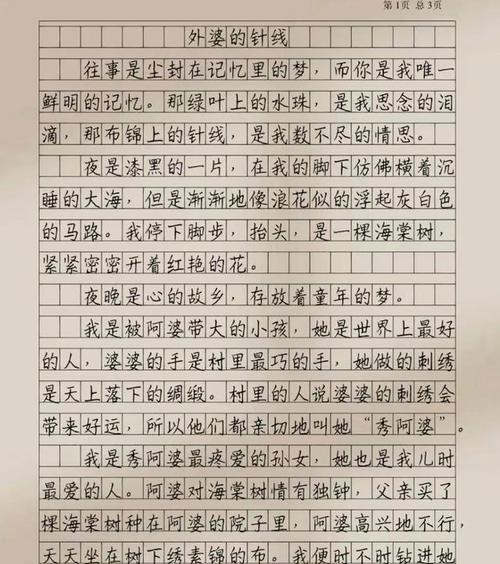 第1页 总3页
外婆的针线
往事是尘封在记忆里的梦，而你是我唯一
鲜明的记忆。那绿叶上的水珠，是我思念的泪
滴，那布锦上的针线，是我数不尽的情思。
夜是漆黑的一片，在我的脚下仿佛横着沉
睡的大海，但是渐渐地像浪花似的浮起灰白色
的马路。我停下脚步，抬头，是一棵海棠树，
紧紧密密开着红艳的花。
夜晚是心的故乡，存放着童年的梦。
我是被阿婆带大的小孩，她是世界上最好
的人，婆婆的手是村里最巧的手，她做的刺绣
是天上落下的绸缎。村里的人说婆婆的刺绣会
带来好运，所以他们都亲切地叫她“秀阿婆”。
我是秀阿婆最疼爱的孙女，她也是我儿时
最爱的人。阿婆对海棠树情有独钟，父亲买了
棵海棠树种在阿婆的院子里，阿婆高兴地不行，
天天坐在树下绣素锦的布。我便时不时钻进她